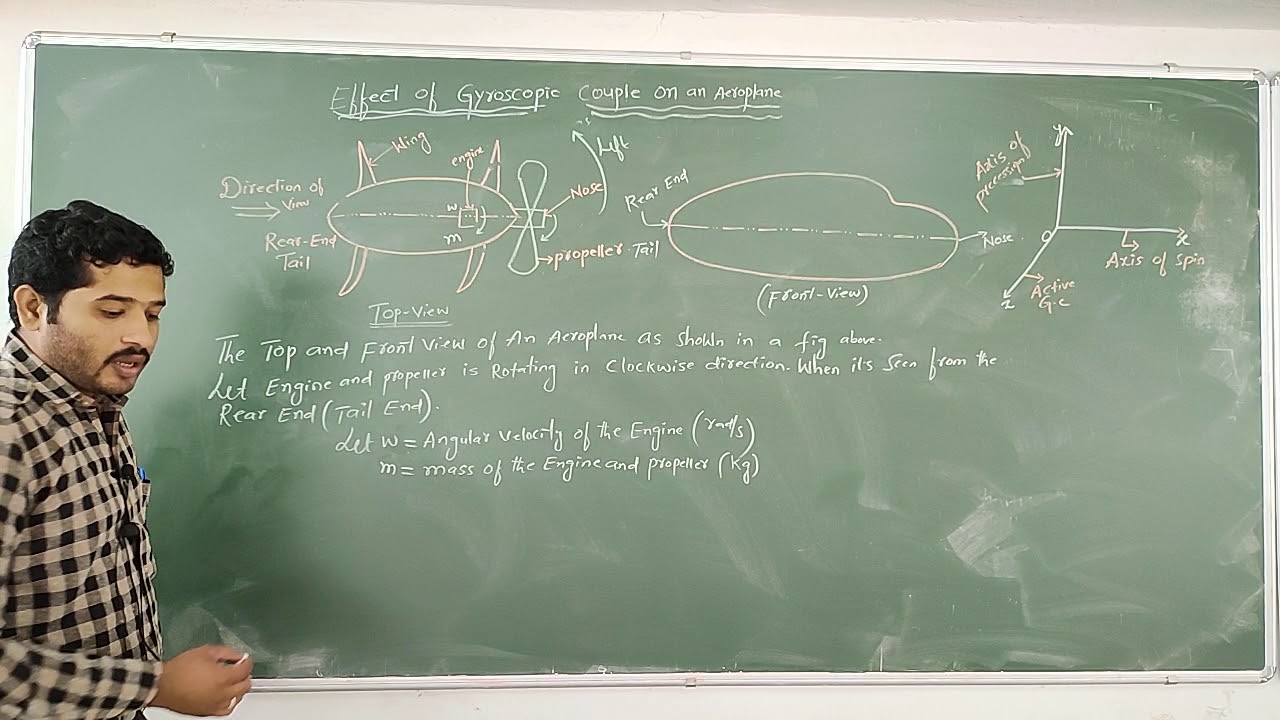 Effect of Gyroscopic Couple on an Aeroplane
Wing
engine
Left
Direction of
View
w
m
Nose
propeller
Rear-End
Tail
Top-View
Rear End
Tail
Nose
(Front-View)
Axis of
precession
y
o
x
Axis of spin
z
Active
G.C
The Top and Front View of An Aeroplane as shown in a fig above.
Let Engine and propeller is Rotating in Clockwise direction. When it's seen from the
Rear End (Tail End).
Let w = Angular Velocity of the Engine (rad/s)
m = mass of the Engine and propeller (Kg)